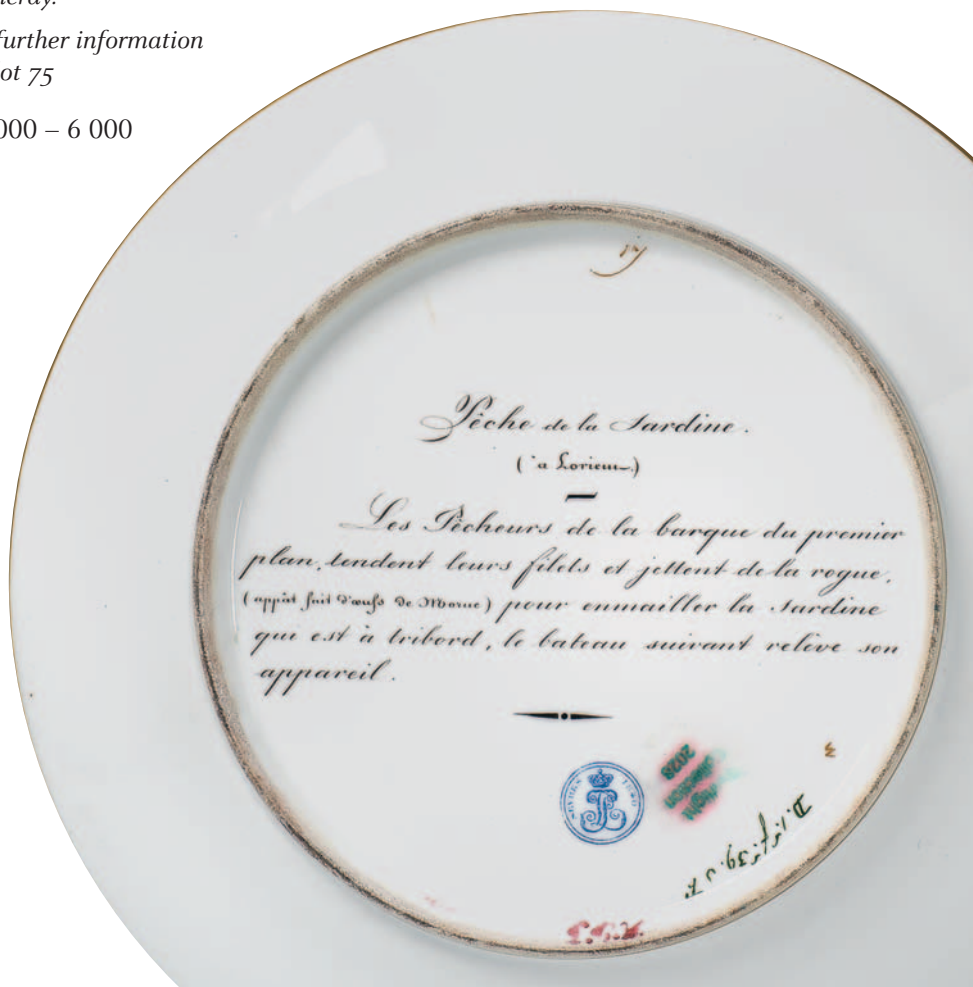 further information
75
000 – 6 000
Pêche de la Sardine.
(à Lorient)
Les Pêcheurs de la barque du premier
plan, tendent leurs filets et jettent de la rogue,
(appât fait d'œufs de Morue) pour enmailler la sardine
qui est à tribord, le bateau suivant relève son
appareil.
SEVRES
2028